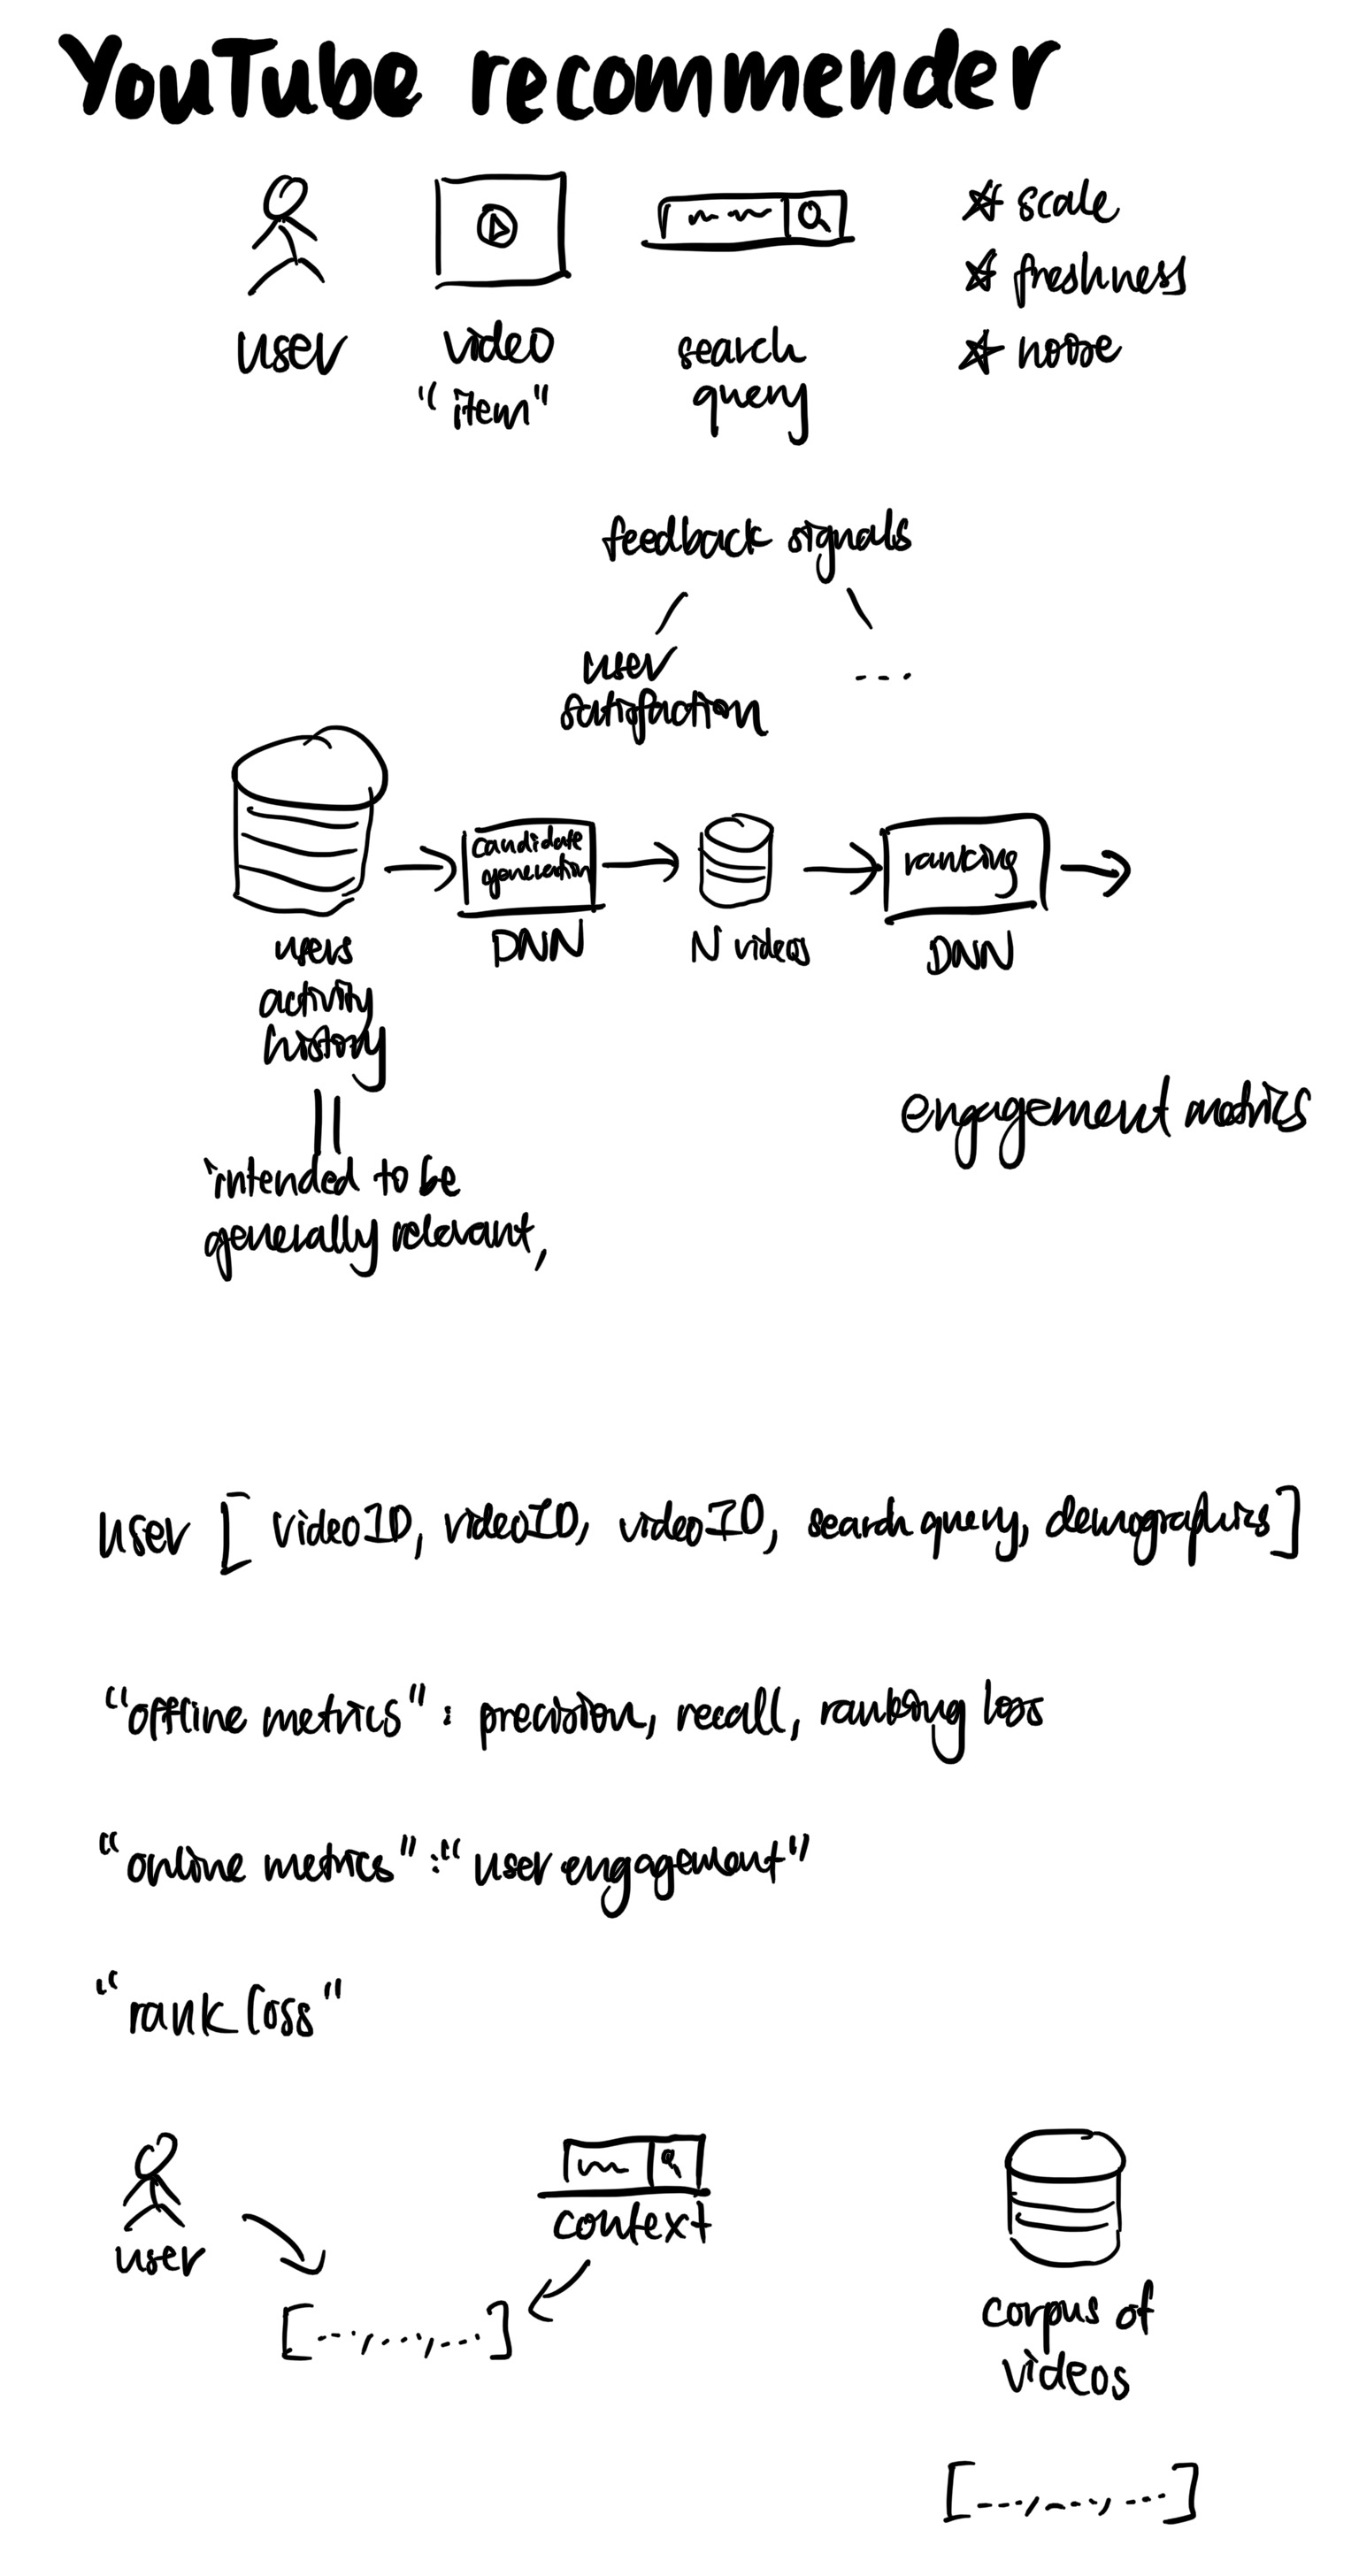 YouTube recommender
user
video
"item"
search
query
☆ scale
☆ freshness
☆ noise
feedback signals
user
satisfaction
...
users
activity
history
candidate
generation
DNN
N videos
ranking
DNN
intended to be
generally relevant,
engagement metrics
user [ videoID, videoID, videoID, search query, demographics]
"offline metrics" : precision, recall, ranking loss
"online metrics" : "user engagement"
"rank loss"
user
context
[...,...,...]
corpus of
videos
[...,...,...]